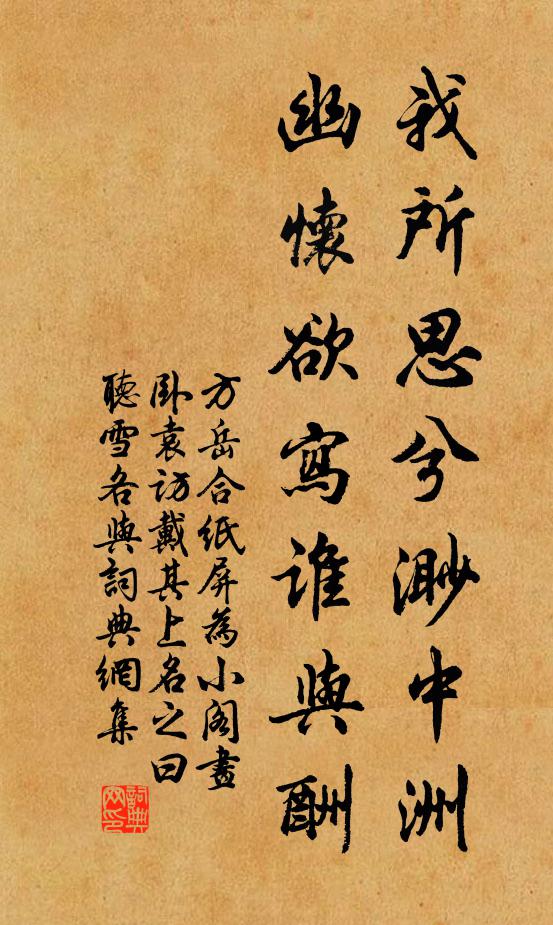 我所思兮渺中洲
幽懷欲寫誰與酬
方岳合紙屏為小閣畫
臥袁訪戴其上名之曰
聽雪各與詞典網集
詞典網印